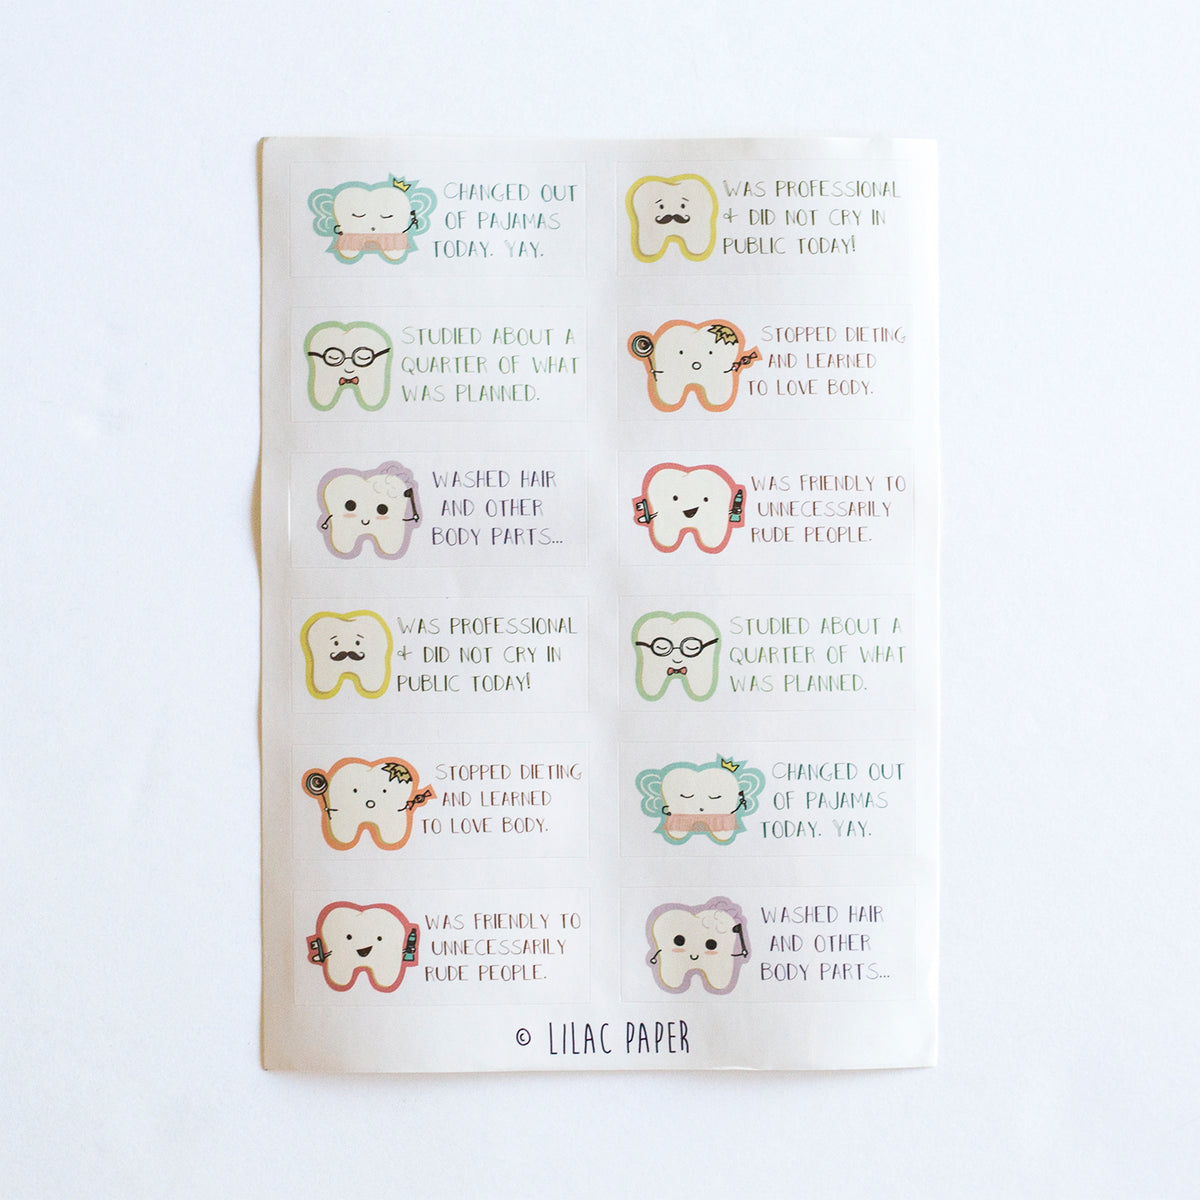 CHANGED OUT
OF PAJAMAS
TODAY. YAY.
WAS PROFESSIONAL
& DID NOT CRY IN
PUBLIC TODAY!
STUDIED ABOUT A
QUARTER OF WHAT
WAS PLANNED.
STOPPED DIETING
AND LEARNED
TO LOVE BODY.
WASHED HAIR
AND OTHER
BODY PARTS...
WAS FRIENDLY TO
UNNECESSARILY
RUDE PEOPLE.
WAS PROFESSIONAL
& DID NOT CRY IN
PUBLIC TODAY!
STUDIED ABOUT A
QUARTER OF WHAT
WAS PLANNED.
STOPPED DIETING
AND LEARNED
TO LOVE BODY.
CHANGED OUT
OF PAJAMAS
TODAY. YAY.
WAS FRIENDLY TO
UNNECESSARILY
RUDE PEOPLE.
WASHED HAIR
AND OTHER
BODY PARTS...
© LILAC PAPER